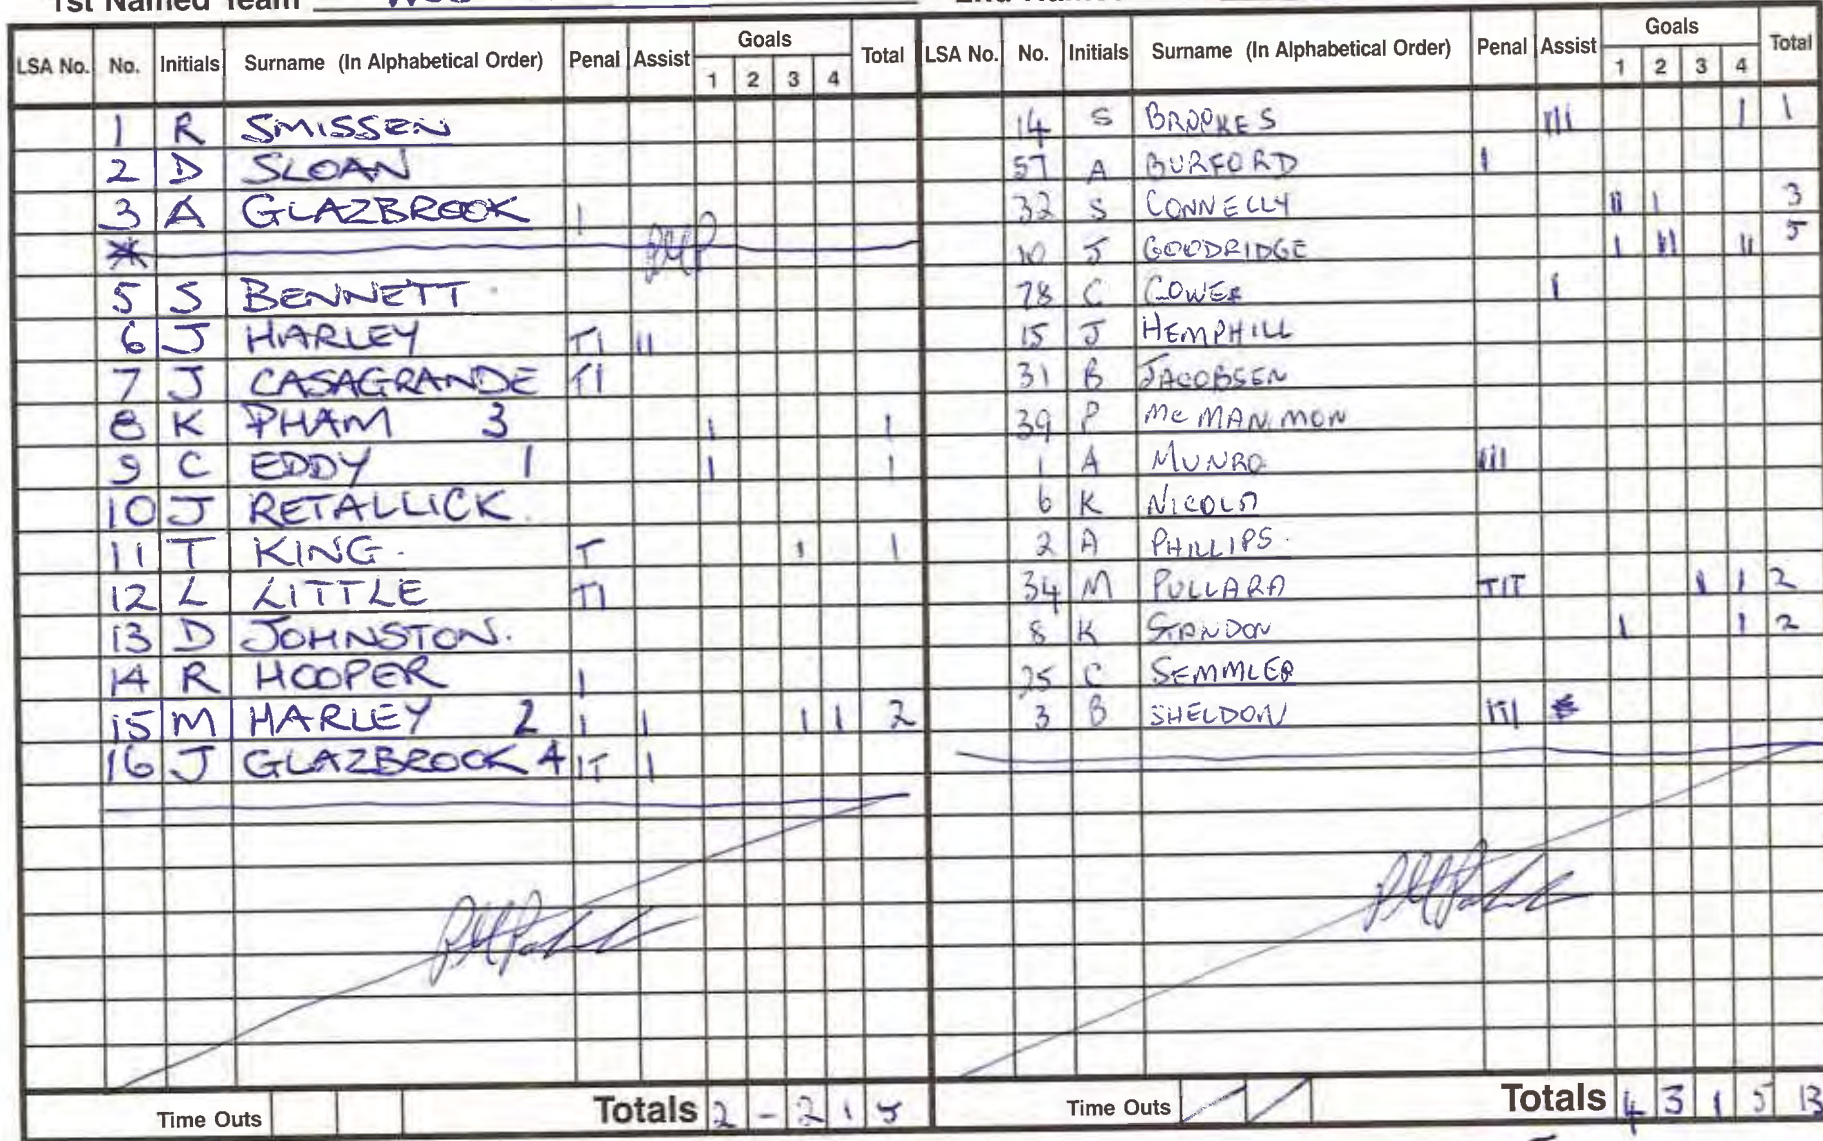 1st Named Team
LSA No. No. Initials Surname (In Alphabetical Order) Penal Assist Goals 1 2 3 4 Total
1 R SMISSEN
2 D SLOAN
3 A GLAZBROOK I
5 S BENNETT
6 J HARLEY TI II
7 J CASAGRANDE TI
8 K PHAM 3 I I
9 C EDDY 1 I I
10 J RETALLICK
11 T KING. T I I
12 L LITTLE TI
13 D JOHNSTON.
14 R HOOPER I
15 M HARLEY 2 I I I I 2
16 J GLAZBROOK 4 IT I
Time Outs Totals 2 - 2 1 5
LSA No. No. Initials Surname (In Alphabetical Order) Penal Assist Goals 1 2 3 4 Total
14 S BROOKES III I 1
57 A BURFORD I
32 S CONNELLY II I 3
10 J GOODRIDGE I II II 5
78 C GOWER I
15 J HEMPHILL
31 B JACOBSEN
39 P McMANMON
1 A MUNRO III
6 K NICOLA
2 A PHILLIPS.
34 M PULLARA TIT I I 2
8 K SANDON I I 2
25 C SEMMLER
3 B SHELDON
Time Outs Totals 4 3 1 5 13